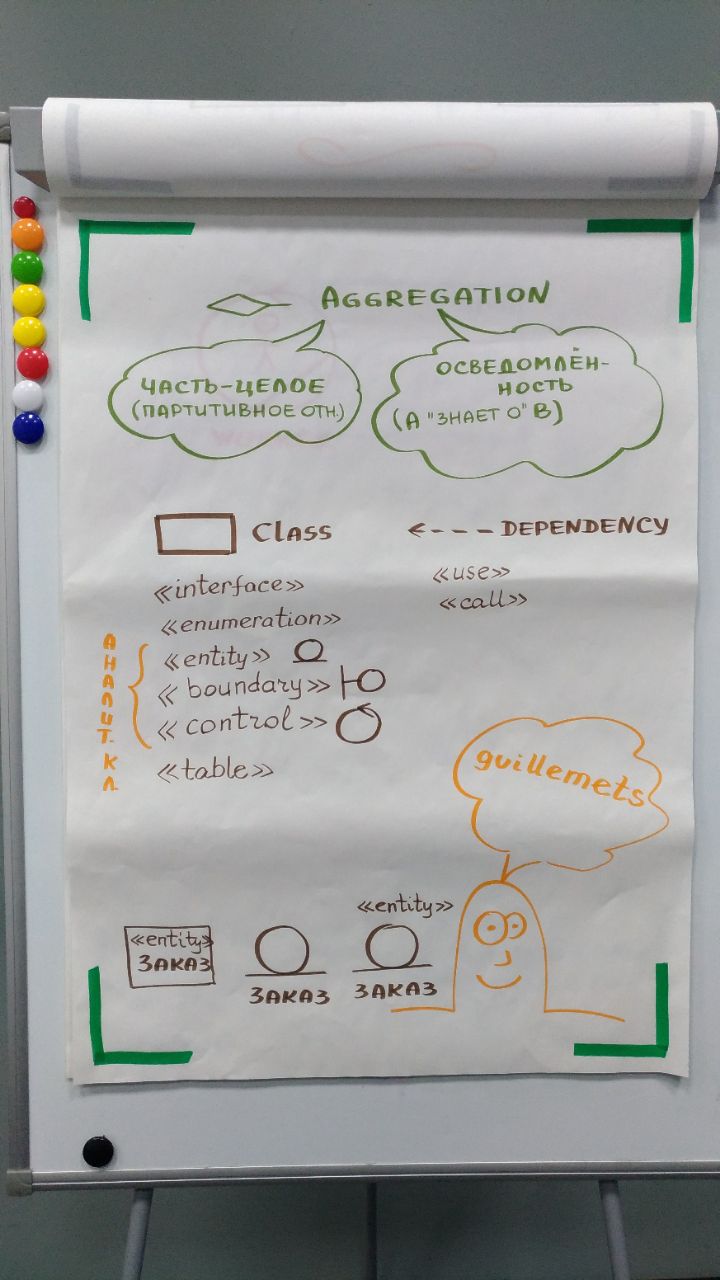 AGGREGATION
ЧАСТЬ-ЦЕЛОЕ
(ПАРТИТИВНОЕ ОТН.)
ОСВЕДОМЛЁН-
НОСТЬ
(А "ЗНАЕТ О" В)
CLASS
DEPENDENCY
«interface»
«enumeration»
«entity»
«boundary»
«control»
«table»
АНАЛИТ. КЛ
«use»
«call»
guillemets
«entity»
ЗАКАЗ
ЗАКАЗ
«entity»
ЗАКАЗ